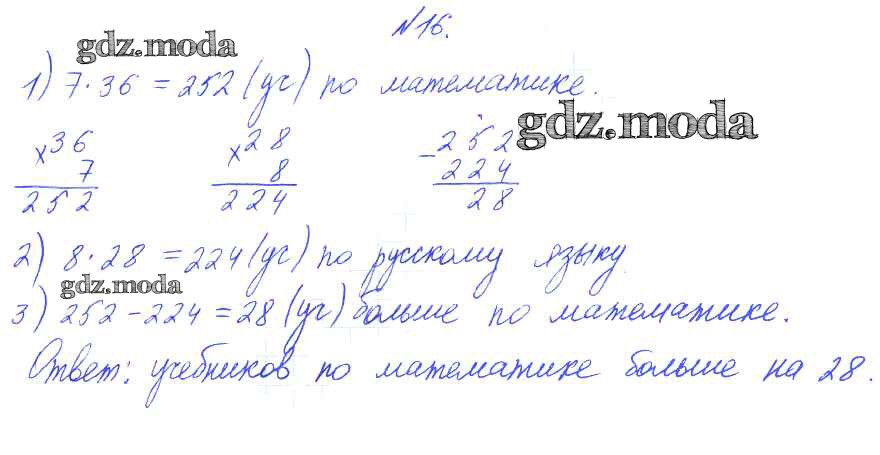 №16.
gdz.moda
1) 7·36 = 252 (уч) по математике.
gdz.moda
×36 ×28 −252
7 8 224
252 224 28
2) 8·28 = 224 (уч) по русскому языку.
gdz.moda
3) 252 − 224 = 28 (уч) больше по математике.
Ответ: учебников по математике больше на 28.